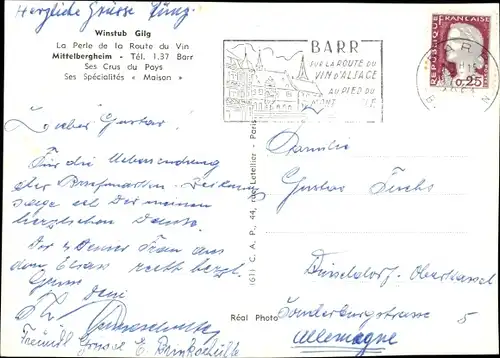 Herzliche Grüsse
Winstub Gilg
La Perle de la Route du Vin
Mittelbergheim - Tél. 1.37 Barr
Ses Crus du Pays
Ses Spécialités « Maison »
BARR
SUR LA ROUTE DU
VIN D'ALSACE
AU PIED DU
MONT
REPUBLIQUE FRANÇAISE
0,25
BARR
Lieber Gustav!
Für die Uebersendung
der Briefmarken-Zeitung
sage ich Dir meinen
herzlichen Danke.
Dir & Deiner Frau aus
dem Elsass recht herzl.
Grüsse Dein
Freundl Grüsse E.
(61) C. A. P., 44, rue Letellier - Paris
Réal Photo
Familie
Gustav Fuchs
Düsseldorf-Oberkassel
Sonderburgstrasse 5
Allemagne